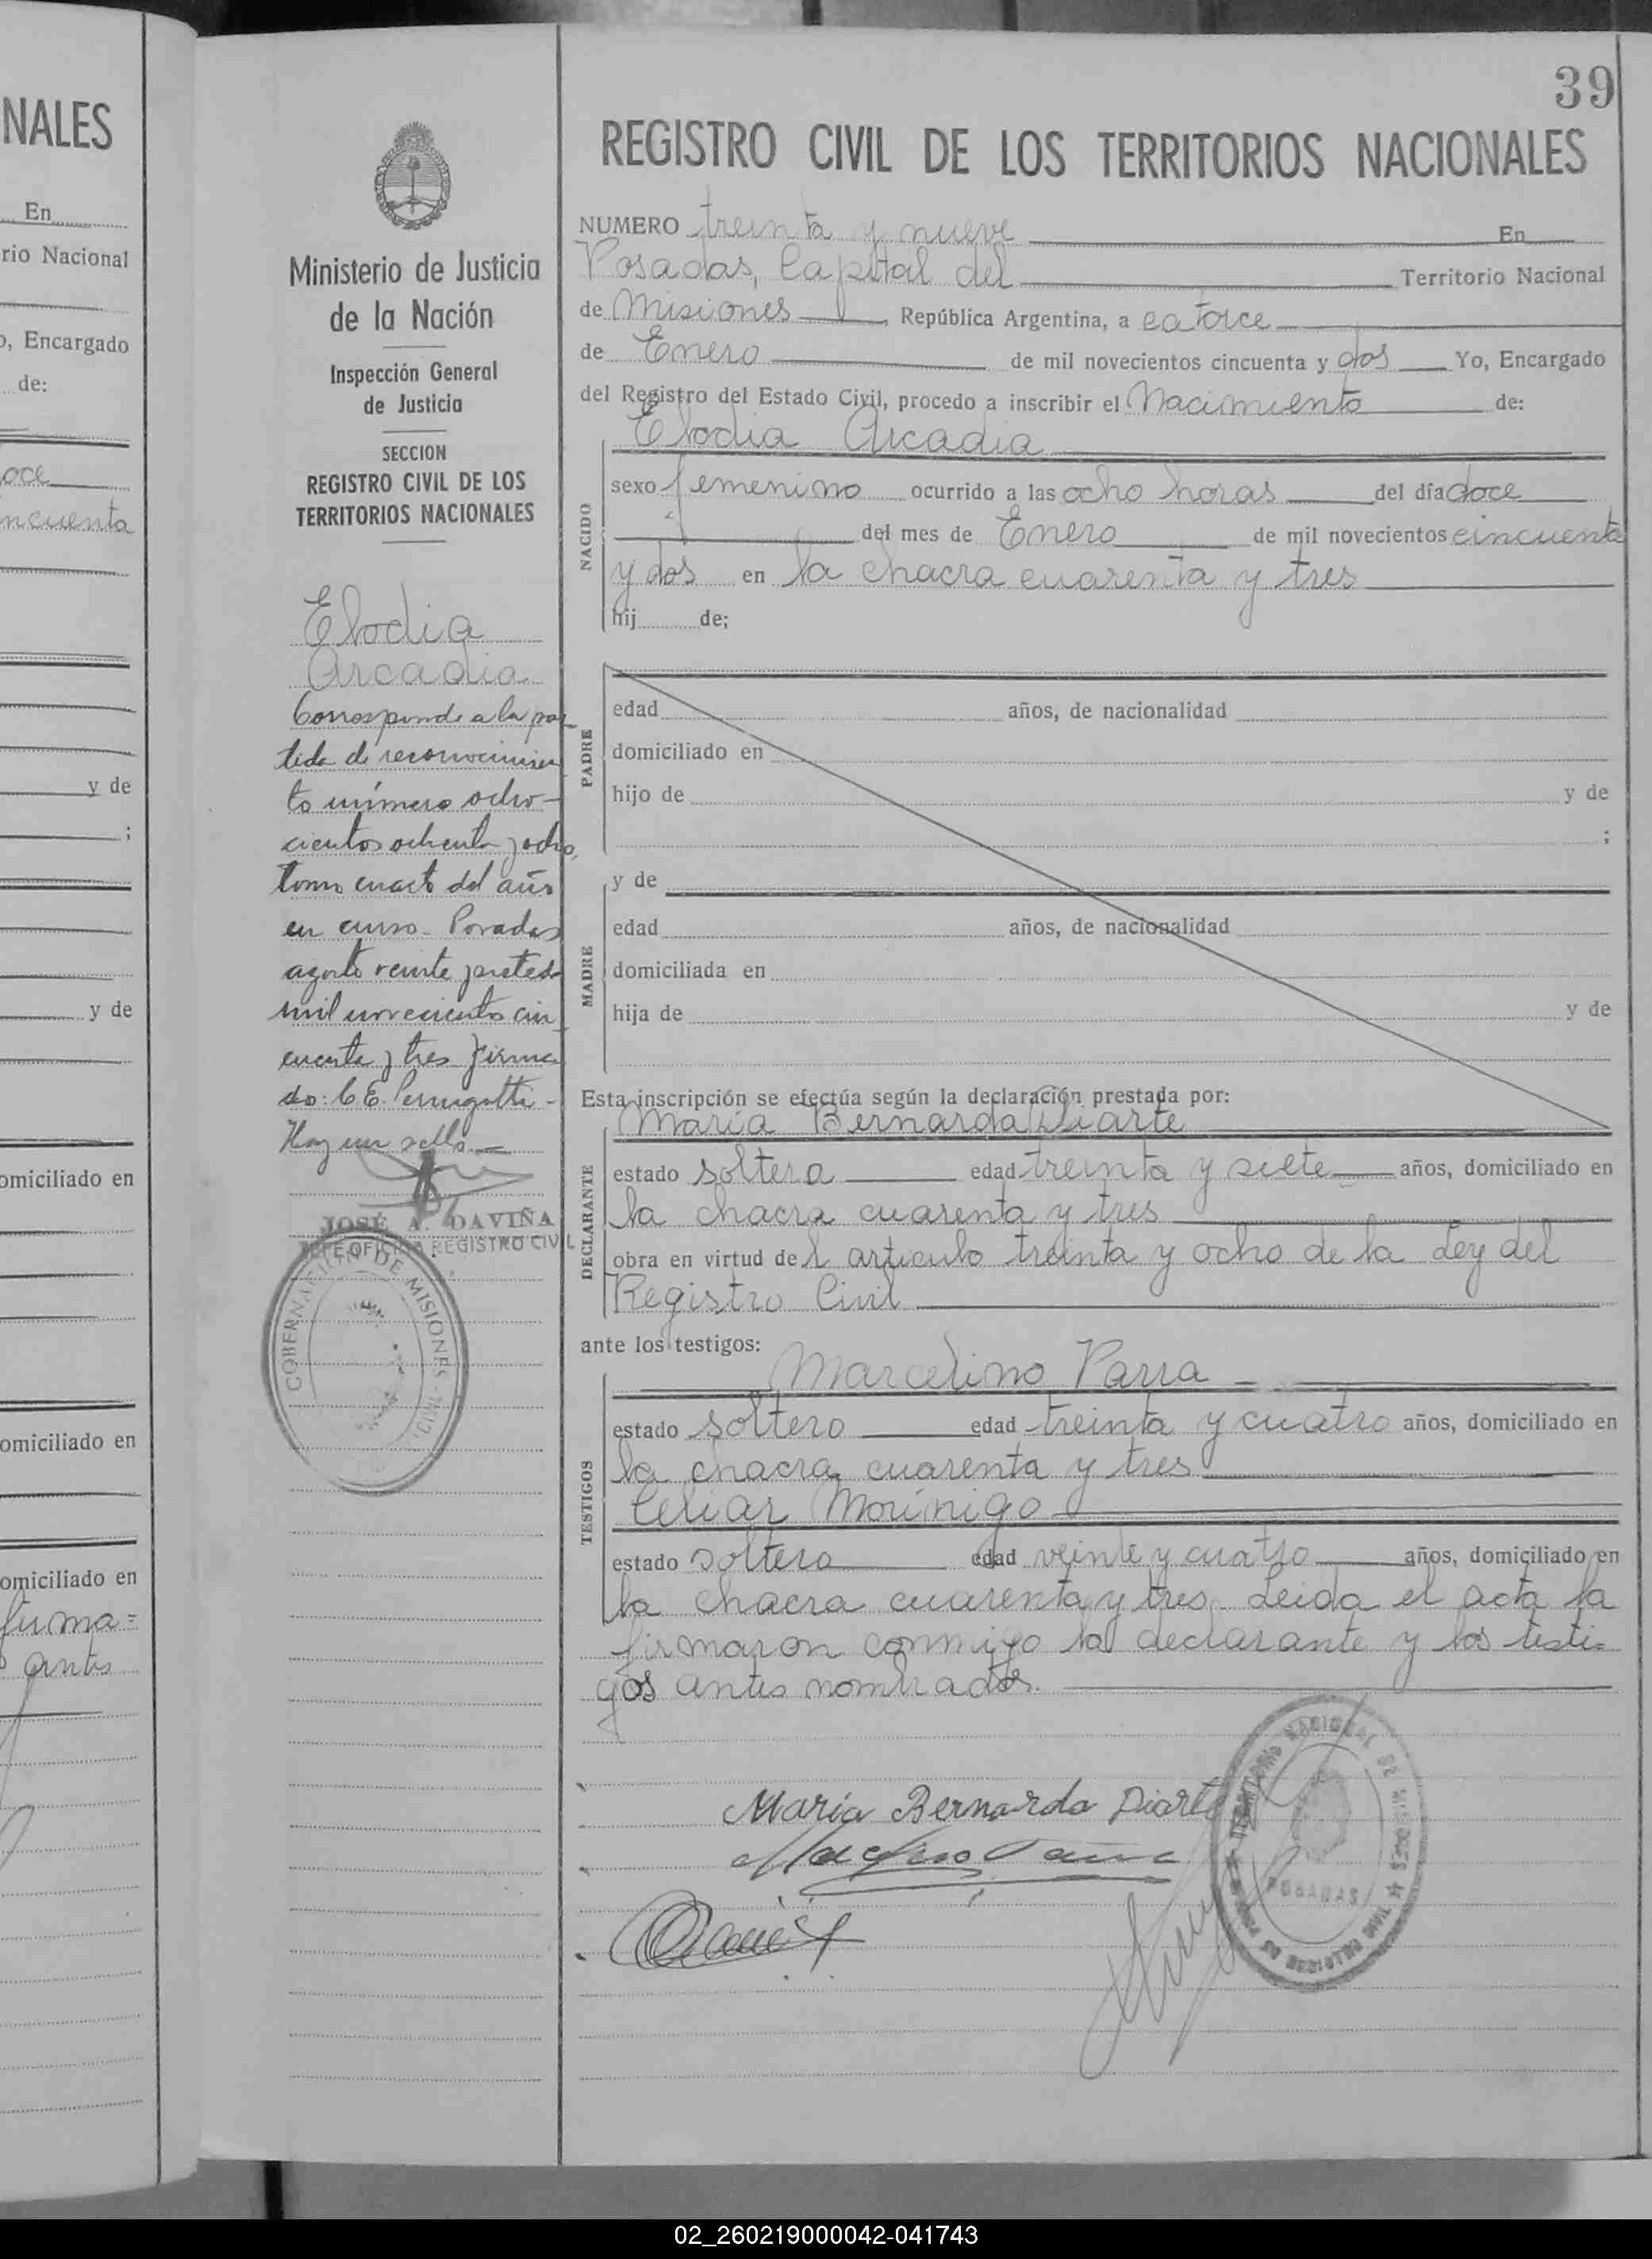 NALES
En
rio Nacional
o, Encargado
de:
oce
ncuenta
y de
;
y de
omiciliado en
omiciliado en
omiciliado en
firma=
antes
39
Ministerio de Justicia
de la Nación
Inspección General
de Justicia
SECCION
REGISTRO CIVIL DE LOS
TERRITORIOS NACIONALES
Elodia
Arcadia
Corresponde a la par
tida de reconocimien
to número ocho-
cientos ochenta y ocho,
tomo cuarto del año
en curso - Posadas
agosto veinte y siete de
mil novecientos cin
cuenta y tres firma
do: C E. Perugotti -
Hay un sello.
JOSÉ A. DAVIÑA
JEFE OFICINA REGISTRO CIVIL
GOBERNACION DE MISIONES
REGISTRO CIVIL DE LOS TERRITORIOS NACIONALES
NUMERO treinta y nueve En
Posadas, Capital del Territorio Nacional
de Misiones, República Argentina, a catorce
de Enero de mil novecientos cincuenta y dos Yo, Encargado
del Registro del Estado Civil, procedo a inscribir el Nacimiento de:
NACIDO
Elodia Arcadia
sexo femenino ocurrido a las ocho horas del día doce
del mes de Enero de mil novecientos cincuenta
y dos en la chacra cuarenta y tres
hij de;
PADRE
edad años, de nacionalidad
domiciliado en
hijo de y de
;
MADRE
y de
edad años, de nacionalidad
domiciliada en
hija de y de
Esta inscripción se efectúa según la declaración prestada por:
DECLARANTE
María Bernarda Diarte
estado soltera edad treinta y siete años, domiciliado en
la chacra cuarenta y tres
obra en virtud del articulo treinta y ocho de la Ley del
Registro Civil
ante los testigos:
TESTIGOS
Marcelino Parra
estado soltero edad treinta y cuatro años, domiciliado en
la chacra cuarenta y tres
Celiar Morínigo
estado soltero edad veinte y cuatro años, domiciliado en
la chacra cuarenta y tres. Leida el acta la
firmaron conmigo la declarante y los testi=
gos antes nombrados.
María Bernarda Diarte
TERRITORIO NACIONAL DE MISIONES
POSADAS
02_260219000042-041743